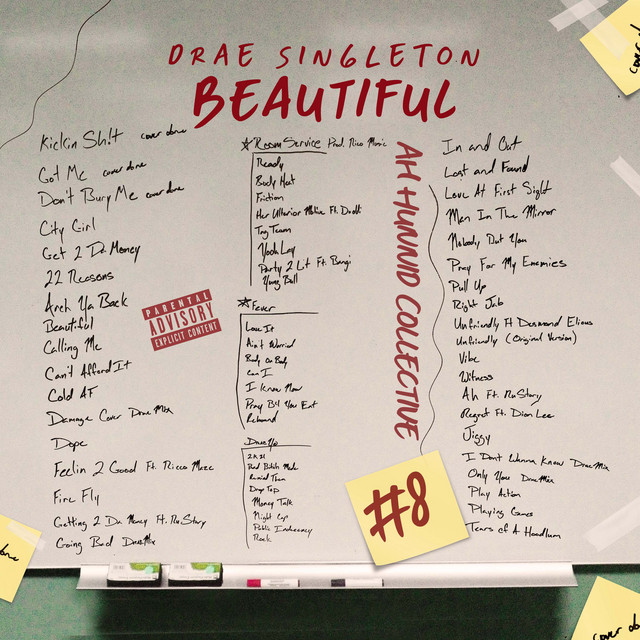 DRAE SINGLETON
BEAUTIFUL
Kickin Sh!t cover done
Got Me cover done
Don't Bury Me cover done
City Girl
Get 2 Da Money
22 Reasons
Arch Ya Back
Beautiful
Calling Me
Can't Afford It
Cold AF
Damage Cover DraeMix
Dope
Feelin 2 Good Ft. Ricco Maze
Fire Fly
Getting 2 Da Money Ft. NuStory
Going Bad DraeMix
PARENTAL
ADVISORY
EXPLICIT CONTENT
Room Service Prod. Nico Music
Ready
Body Heat
Friction
Her Ulterior Motive Ft.
Tag Team
Yeah Lay
Party 2 Lit Ft. Bangi
Yung Ball
Fever
Love It
Ain't Worried
Body On Body
Can I
I Know Now
Pray B4 You Eat
Rebound
2k21
Bad Bitch Mode
Remind Them
Drop Top
Money Talk
Night Cap
Public Indecency
Rock
AH HUNNID COLLECTIVE
In and Out
Lost and Found
Love At First Sight
Man In The Mirror
Nobody But You
Pray For My Enemies
Pull Up
Right Jab
Unfriendly Ft Desmond Elious
Unfriendly (Original Version)
Vibe
Witness
Ah Ft. NuStory
Regret Ft. Dion Lee
Jiggy
I Don't Wanna Know DraeMix
Only You DraeMix
Play Action
Playing Games
Tears of A Hoodlum
#8
cover do